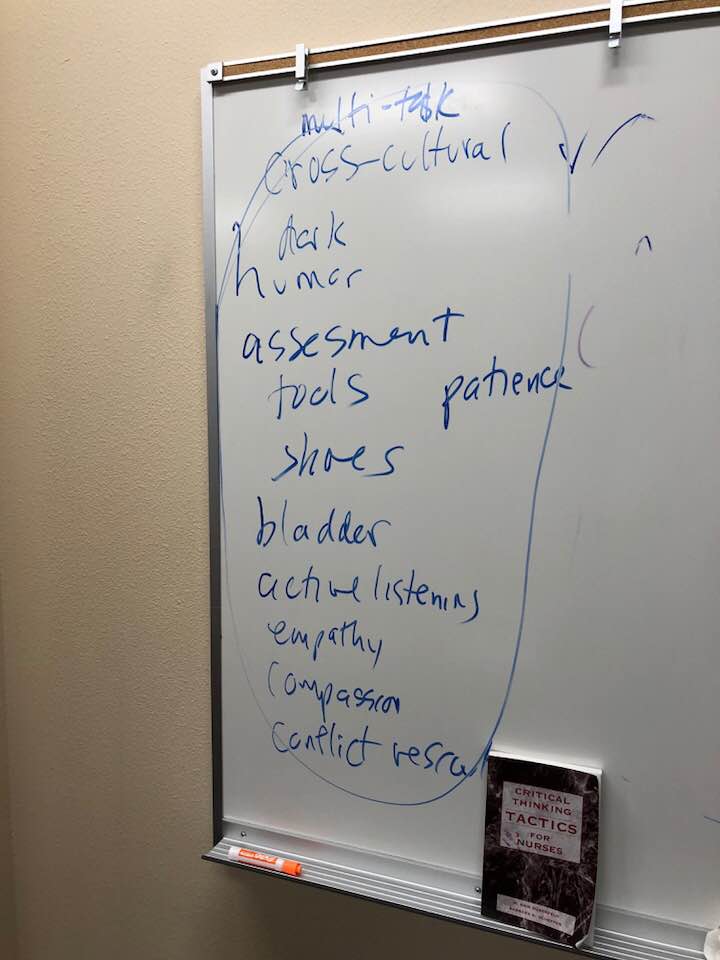 multi-task
cross-cultural
dark
humor
assesment
tools patience
shoes
bladder
active listening
empathy
compassion
conflict
CRITICAL
THINKING
TACTICS
FOR
NURSES